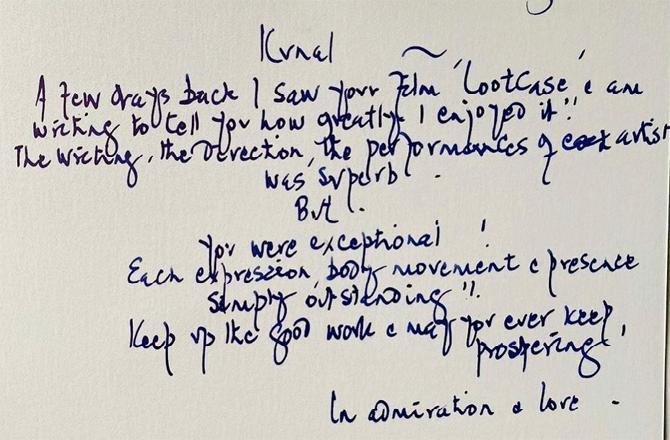 Kunal
A few days back I saw your film 'Lootcase' & am
writing to tell you how greatly I enjoyed it!!
The writing, the Direction, the performances of each artist
was superb.
But.
You were exceptional!
Each expression, body movement & presence
simply outstanding!!
Keep up the good work & may you ever keep
prospering!
In admiration & love -